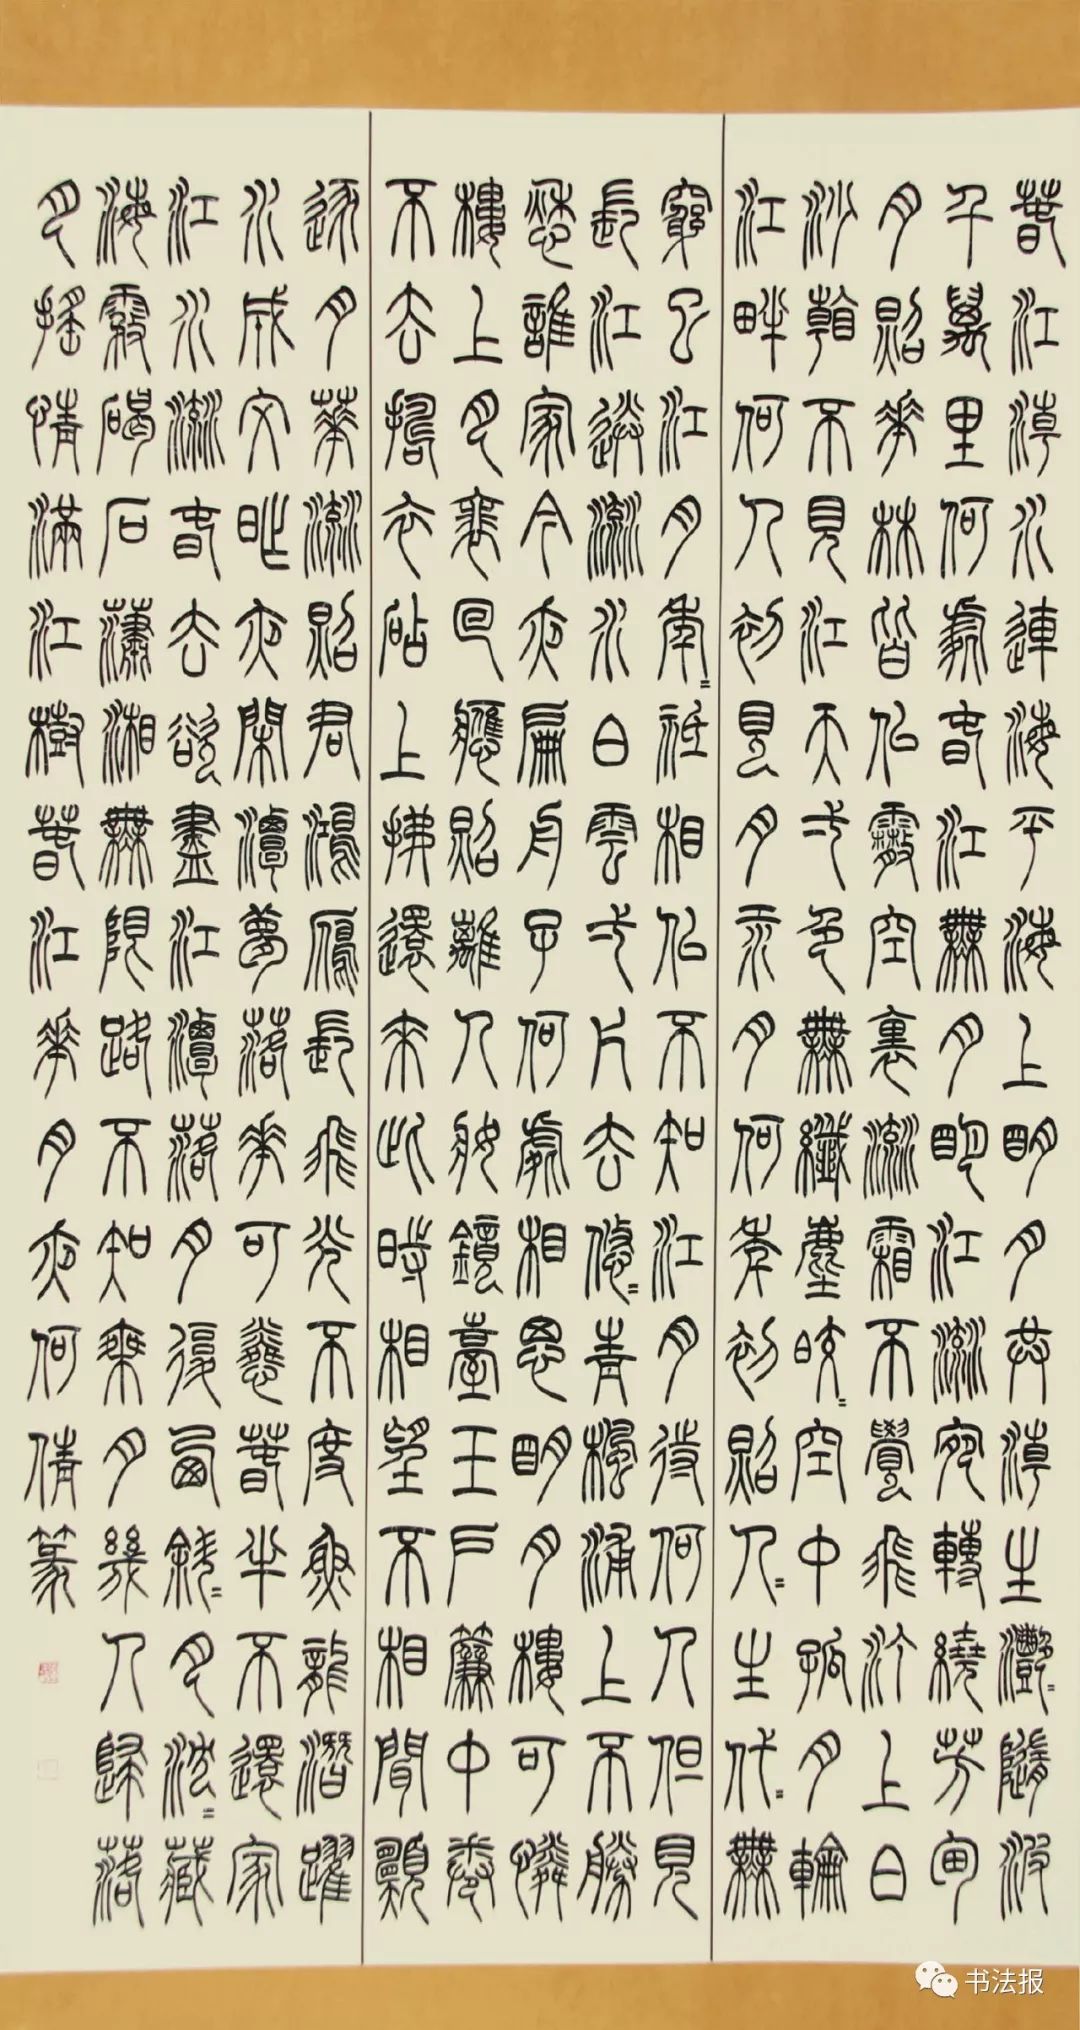 春江潮水連海平海上明月共潮生灩=隨波
千萬里何處春江無月明江流宛轉繞芳甸
月照花林皆似霰空裏流霜不覺飛汀上白
沙看不見江天一色無纖塵皎=空中孤月輪
江畔何人初見月江月何年初照人=生代=無
窮已江月年=祗相似不知江月待何人但見
長江送流水白雲一片去悠=青楓浦上不勝
愁誰家今夜扁舟子何處相思明月樓可憐
樓上月裵回應照離人妝鏡臺玉戶簾中卷
不去搗衣砧上拂還來此時相望不相聞願
逐月華流照君鴻雁長飛光不度魚龍潛躍
水成文昨夜閑潭夢落花可憐春半不還家
江水流春去欲盡江潭落月復西斜=月沈=藏
海霧碣石瀟湘無限路不知乘月幾人歸落
月搖情滿江樹春江花月夜何倩篆
书法报